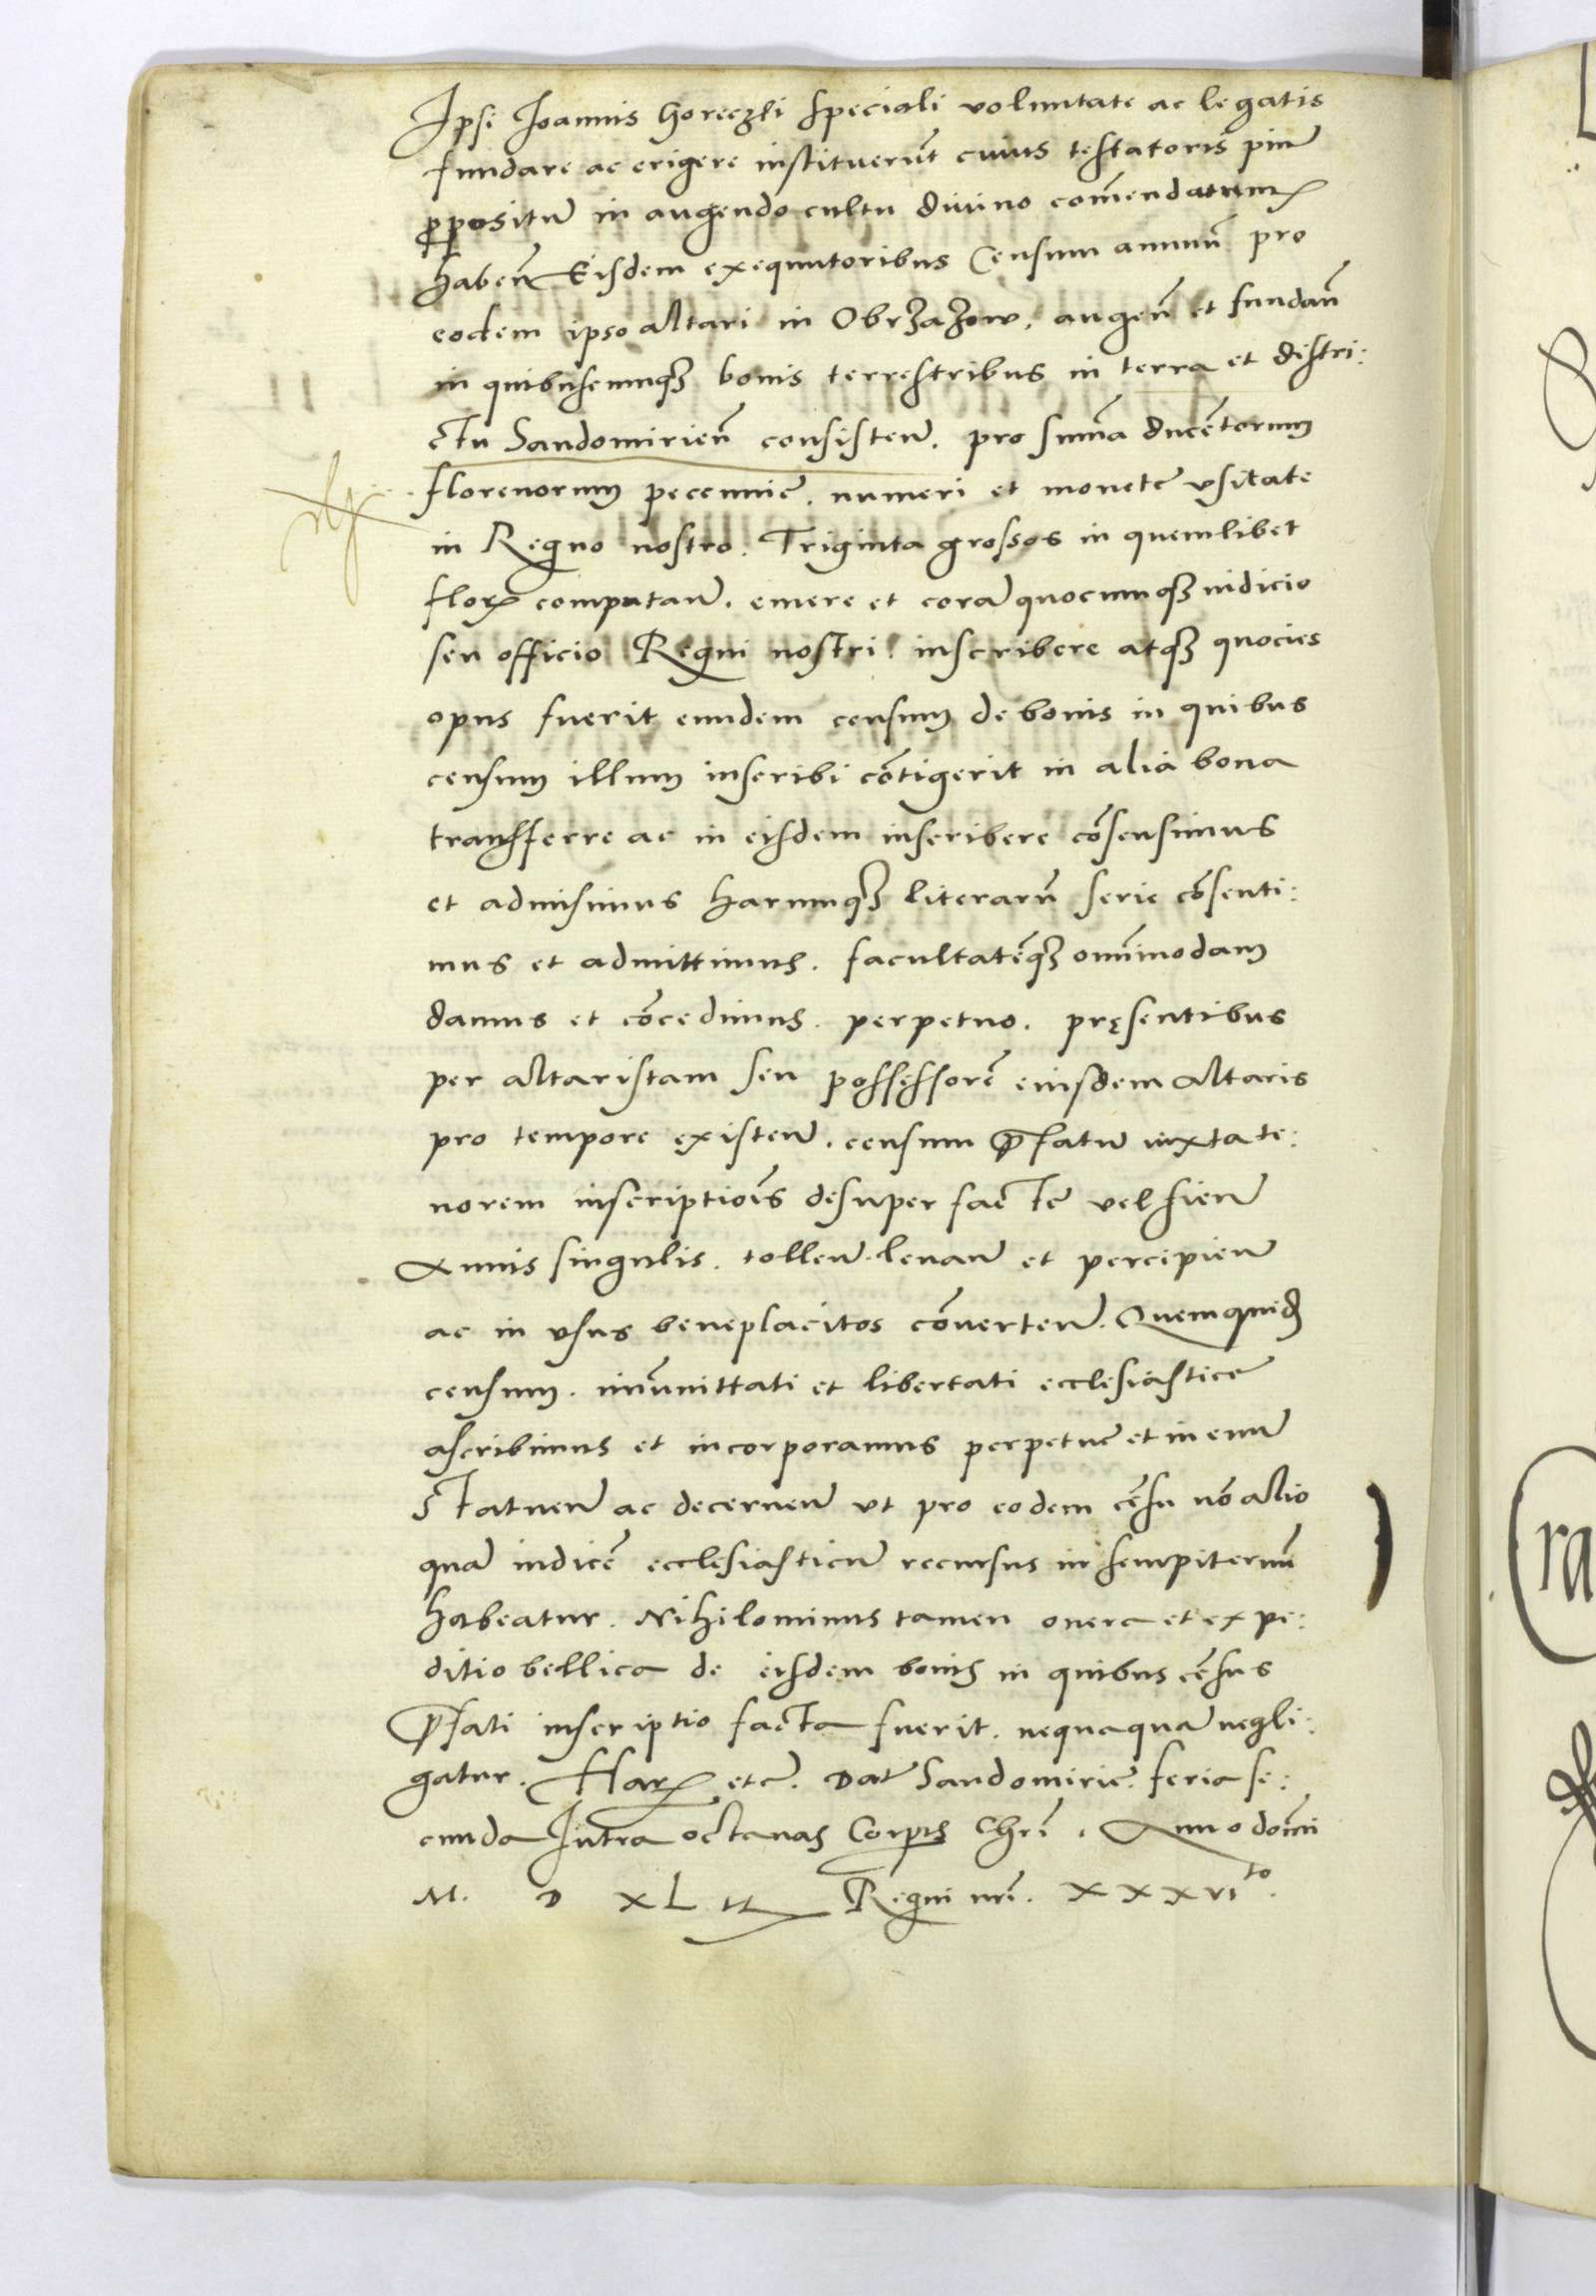 Ipsi Ioannis Horeczki speciali voluntate ac legatis
fundare ac erigere instituerūt cuius testatoris piū
ꝓpositū in augendo cultu diuino com̄endatumꝗ
habeñ Eisdem exequutoribus Censum annuū pro
eodem ipso altari in Obrzazow, augeñ et fundañ
in quibuscumqꝫ bonis terrestribus in terra et distri:
ctu Sandomirieñ consisteñ. pro sum̄a ducētorum
florenorum pecunie. numeri et monete vsitate
in Regno nostro. Triginta grossos in quemlibet
floꝝ computañ. emere et corā quocumqꝫ iudicio
seu officio Regni nostri. inscribere atqꝫ quocies
opus fuerit eundem censum de bonis in quibus
censum illum inscribi cōtigerit in alia bona
transferre ac in eisdem inscribere cōsensimus
et admisimus harumqꝫ literarū serie cōsenti:
mus et admittimus. facultatēqꝫ omnimodam
damus et cōcedimus. perpetuo. pręsentibus
per altaristam seu possessorē eiusdem altaris
pro tempore existeñ. censum p̄fatū iuxta te:
norem inscriptiōis desuper facte vel fieñ
Annis singulis. tolleñ. leuañ et percipieñ
ac in vsus beneplacitos cōuerteñ. Quemquid
censum. im̄unittati et libertati ecclesiastice
ascribimus et incorporamus perpetue et in euū
Statueñ ac decerneñ vt pro eodem cēsu nō alio
quā iudicē ecclesiasticū recursus in sempiternū
habeatur. Nihilominus tamen onera et expe:
ditio bellica de eisdem bonis in quibus cēsus
p̄fati inscriptio facta fuerit. nequaquā negli:
gatur. Haꝝ etc. Dat Sandomirie. feria se:
cunda Intra octauas Corpis Chri. Anno domi
M. D XL II Regni nri. XXXVIto.